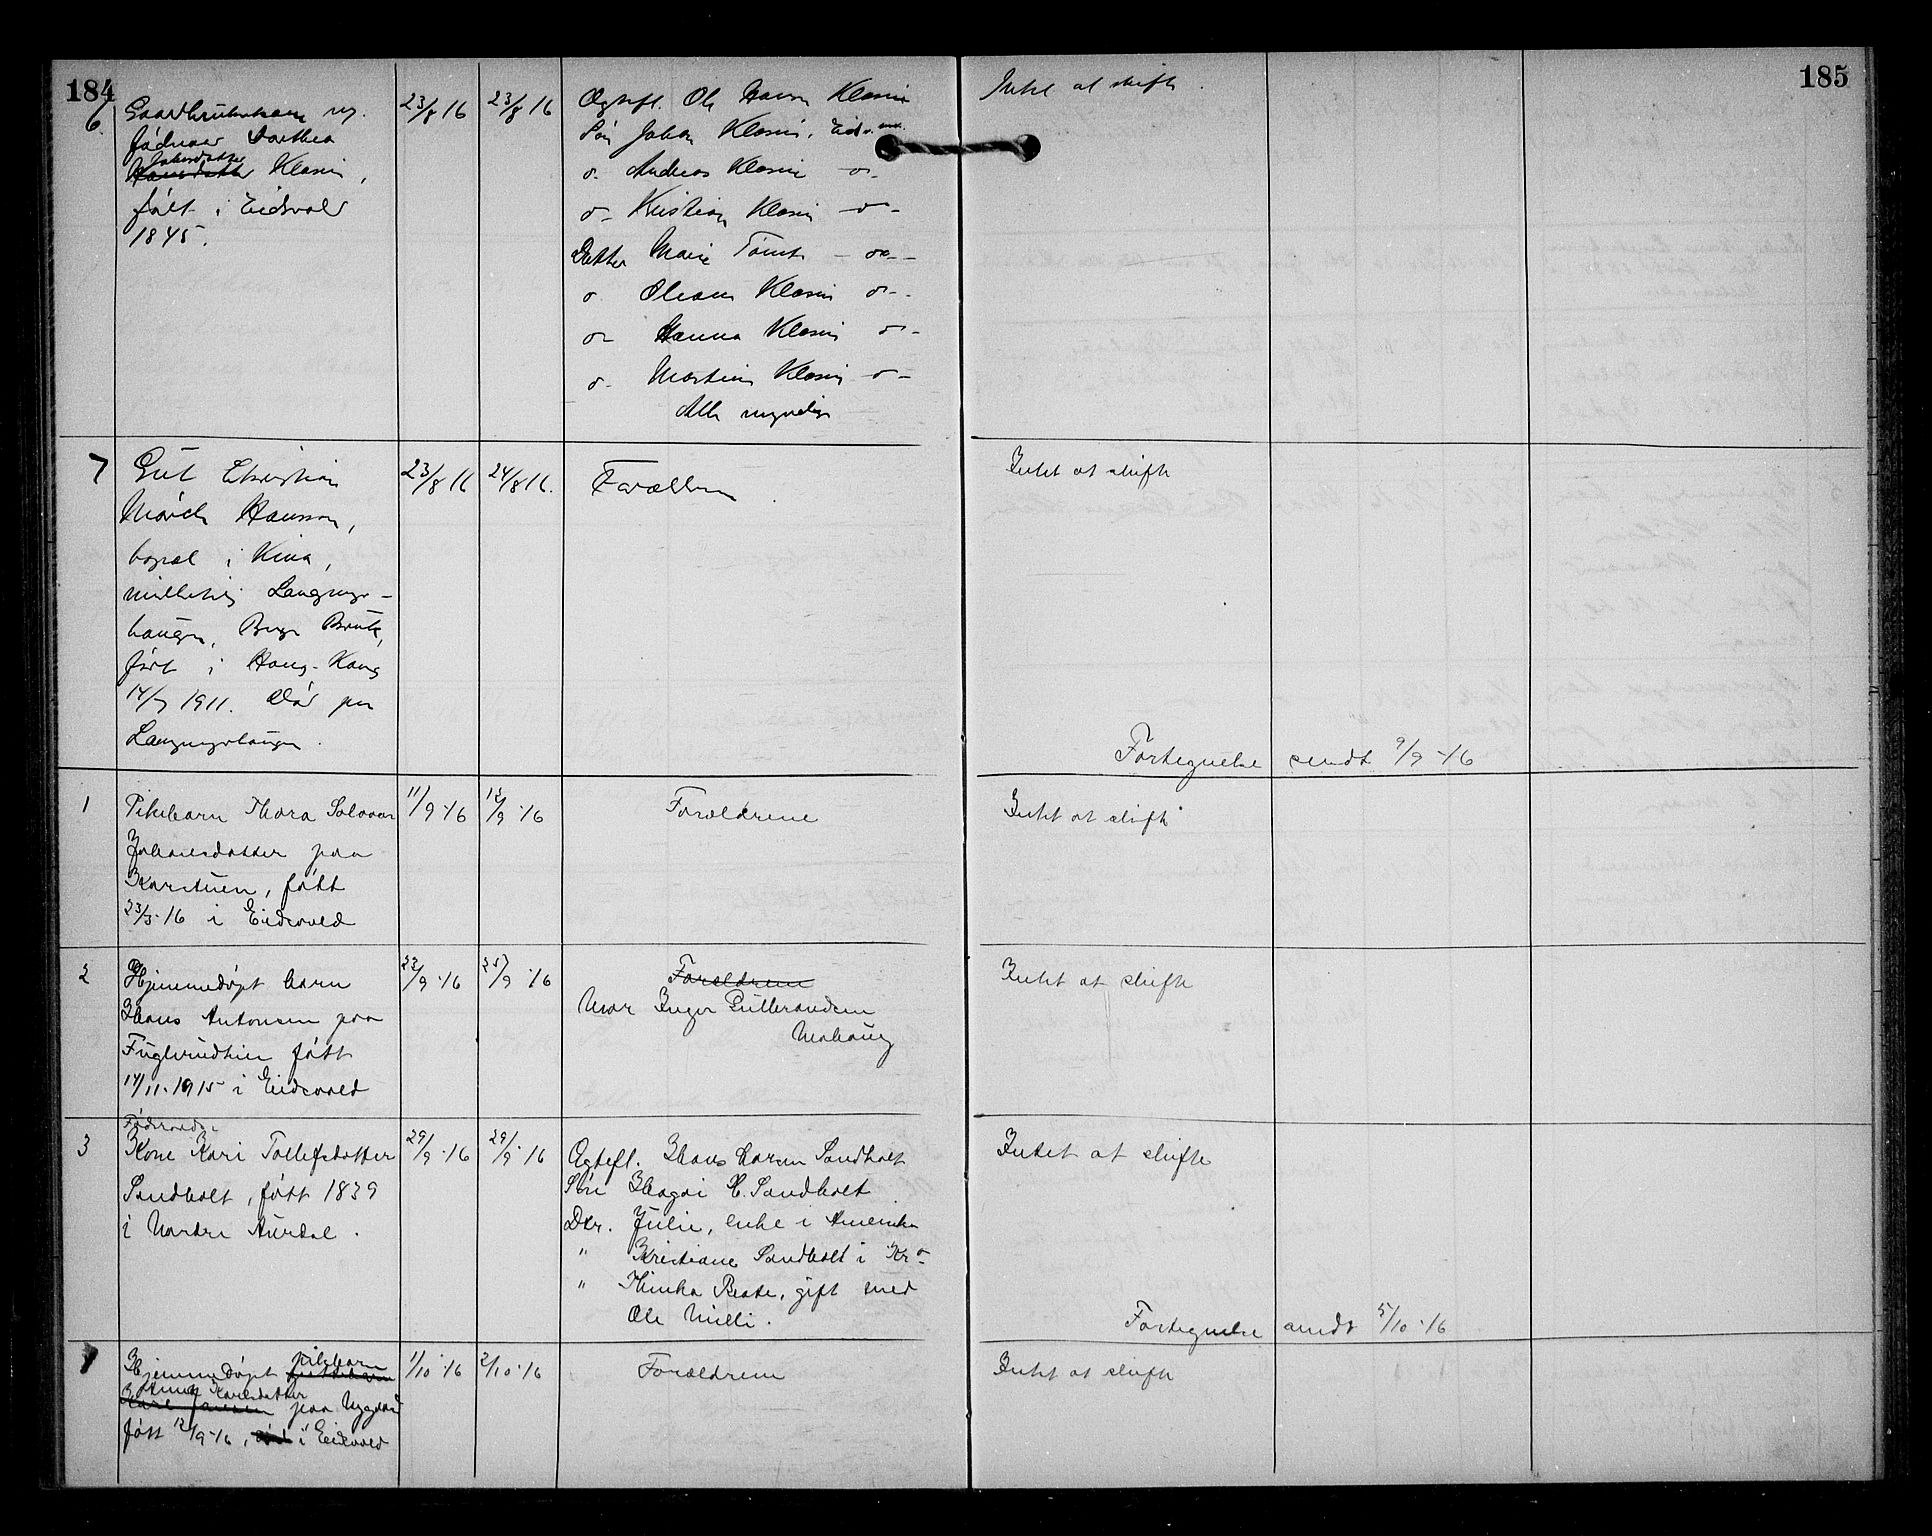 184
185
6. Gaardbrukerkone og
føderaad Dorthea
Johansdatter
Hansdatter Klæsi,
født i Eidsvold
1845.
23/8 16
23/8 16
Ægtefl. Ole Hansen Klæsi
Søn Johan Klæsi, Eidsv.
d. Andreas Klæsi d-
d- Kristian Klæsi -d-
Datter Marie Tømte - do -
d Oleane Klæsi d-
d- Hanna Klæsi d-
d. Martin Klæsi d-
Alle myndige
Intet at skifte.
7 Gut Christian
Mørch Hansson,
bopæl i Kina,
midlertidig Langnes-
haugen,
født i Hong-Kong
14/7 1911. Død paa
23/8 16
24/8 16.
Forældrene
Intet at skifte
Fortegnelse sendt 9/9 -16
1
Pikebarn Thora Solvaar
Johansdatter paa
født
23/3-16 i Eidsvold
11/9 -16
12/9 -16
Forældrene
Intet at skifte
2
Hjemmedøpt barn
Hans Antonsen paa
født
14/11-1915 i Eidsvold
23/9 -16
25/9 -16
Forældrene
Mor Inger Gulbrandsen
Mohaug
Intet at skifte
3
Føderaads-
Kone Kari Tollefsdatter
Sandholt, født 1839
i Nordre Aurdal.
29/9 -16
29/9 -16
Ægtefl. Hans Larsen Sandholt
Søn Hagai H. Sandholt
Dtr. Julie, enke i Amerika
" Kristiane Sandholt i Kr-
" Thinka Beate, gift med
Ole Milli.
Intet at skifte
Fortegnelse sendt 5/10 -16
Hjemmedøpt pikebarn
Anna Karlsdatter
Karl Jansen paa Nygaard
født 12/9-16, død i Eidsvold
1/10 -16
2/10 -16
Forældrene
Intet at skifte